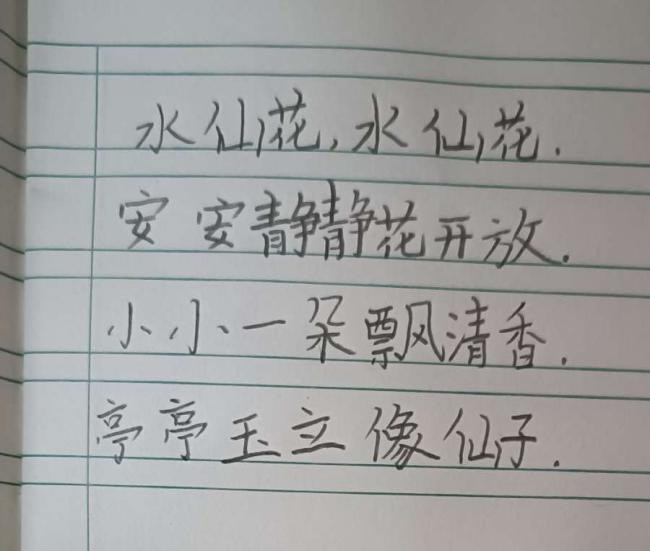 水仙花,水仙花.
安安静静花开放.
小小一朵飘清香.
亭亭玉立像仙子.